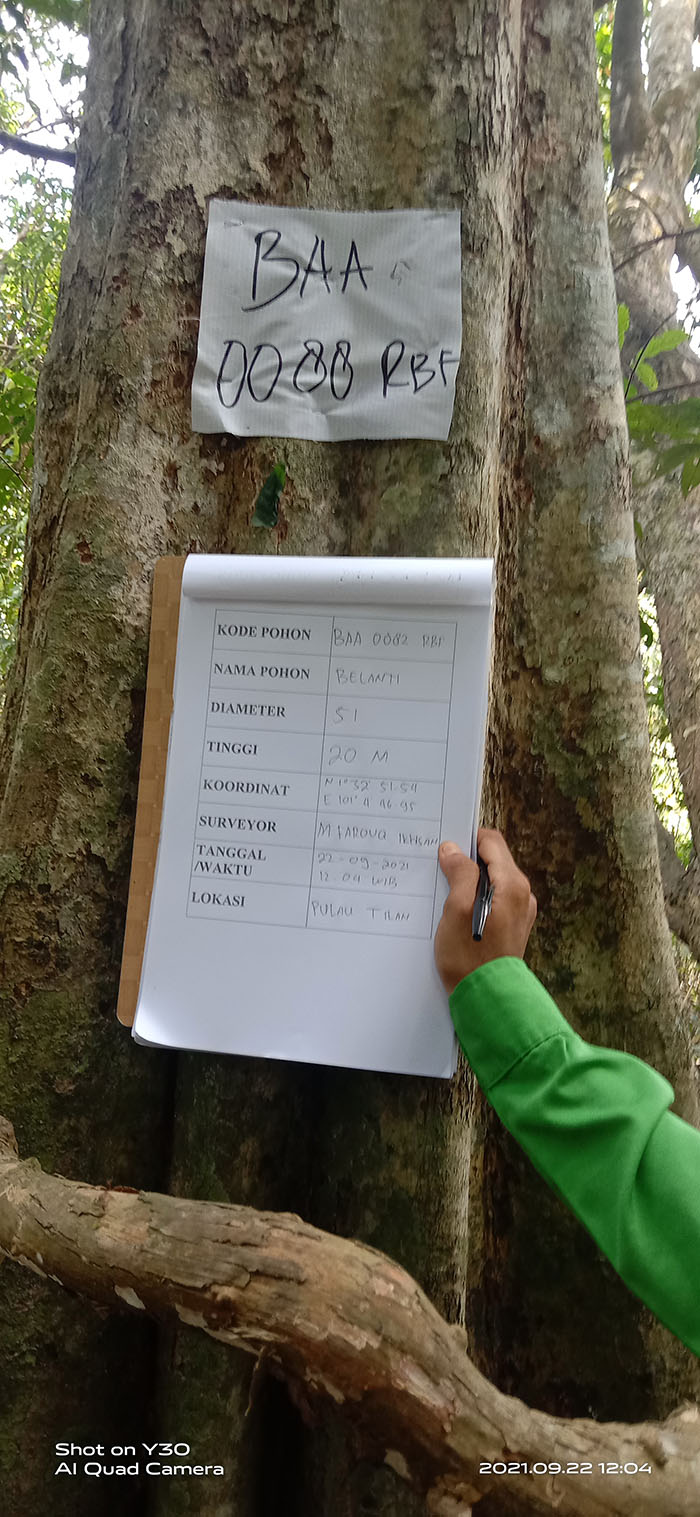 BAA
0088 RBF
KODE POHON BAA 0082 RBF
NAMA POHON BELANTI
DIAMETER 51
TINGGI 20 M
KOORDINAT N 1° 32' 51.54
E 101° 11' 46.95
SURVEYOR M FAROUQ IKHSAN
TANGGAL 22-09-2021
/WAKTU 12.04 WIB
LOKASI PULAU TILAN
Shot on Y30
AI Quad Camera
2021.09.22 12:04